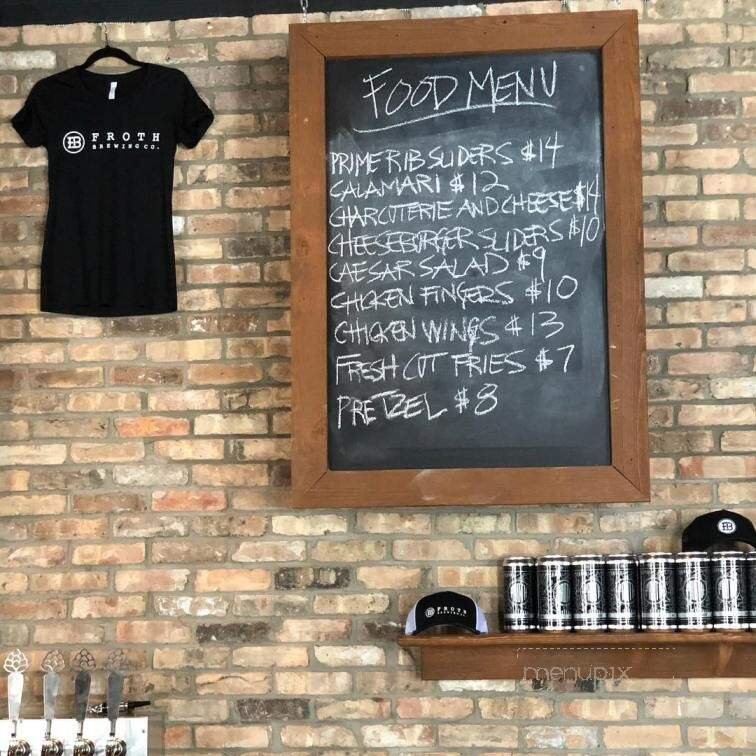 FROTH
BREWING CO.
FOOD MENU
PRIME RIB SLIDERS $14
CALAMARI $12
CHARCUTERIE AND CHEESE $14
CHEESEBURGER SLIDERS $10
CAESAR SALAD $9
CHICKEN FINGERS $10
CHICKEN WINGS $13
FRESH CUT FRIES $7
PRETZEL $8
FROTH
menupix